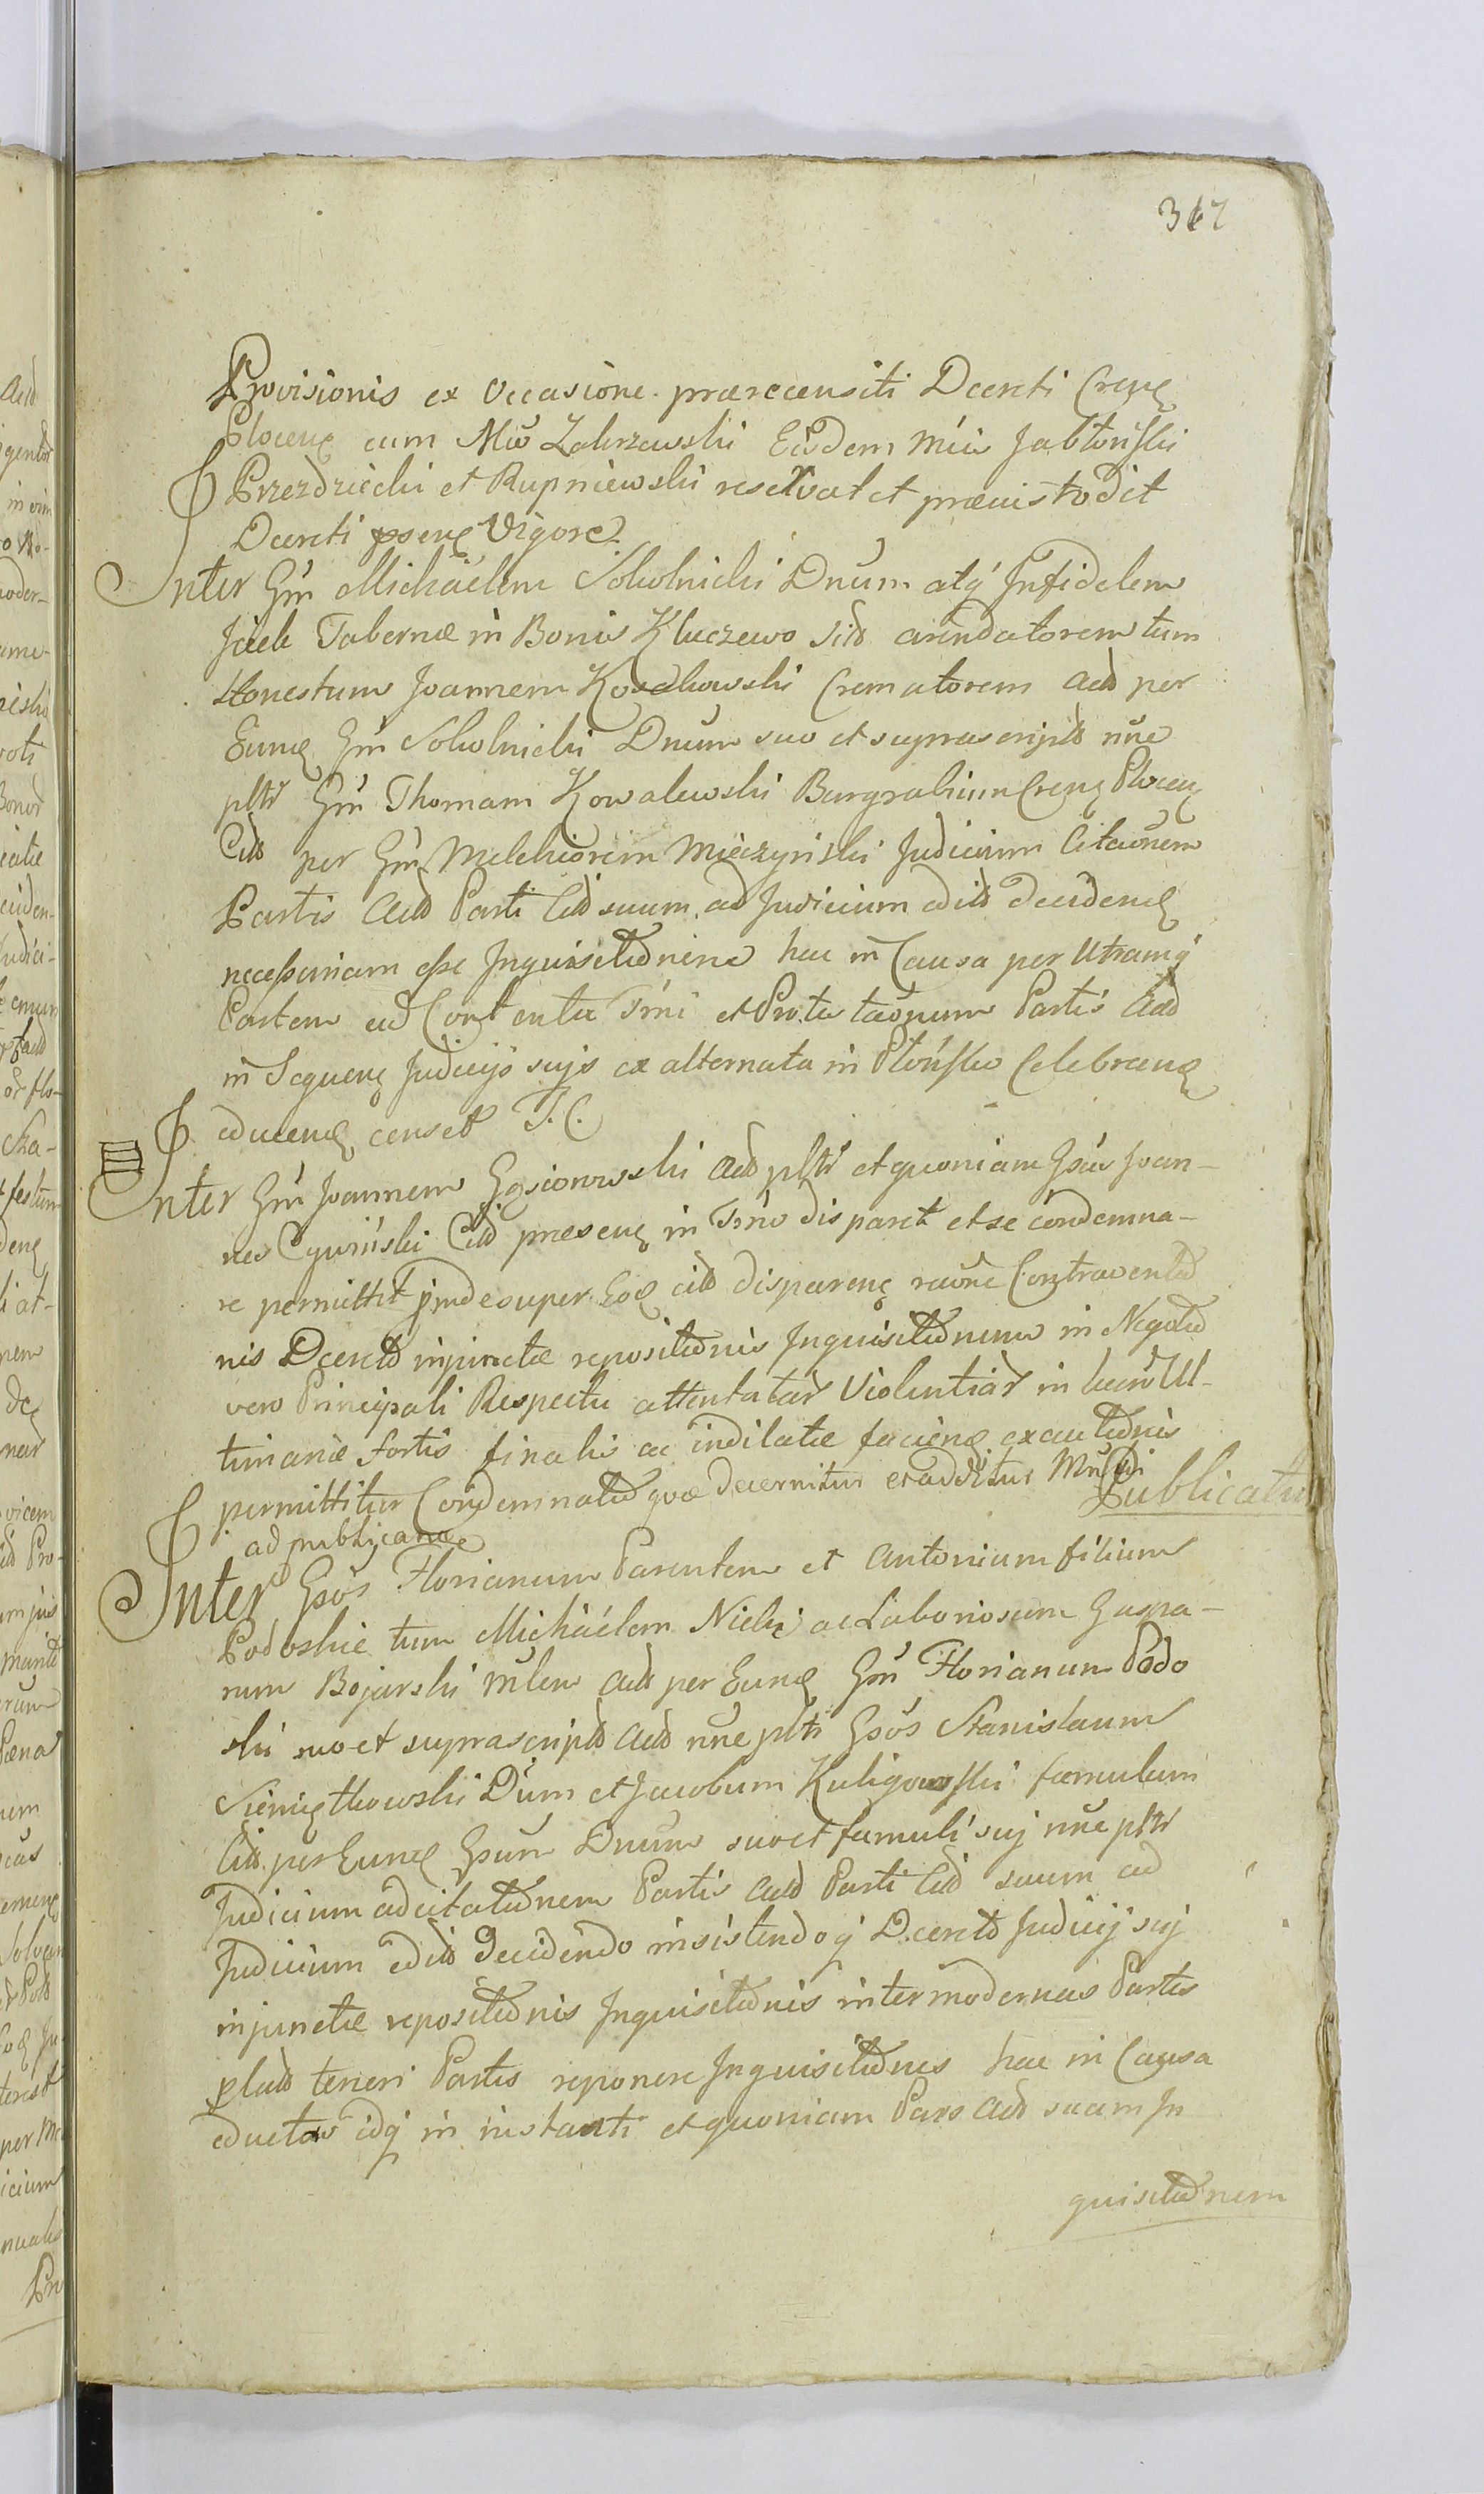 367
Provisionis ex Occasione præreccensiti Dcreti Crenę
Plocenę cum Mco Zakrzewski Eisdem Mcis Jabłoński
Przezdziecki et Rupniewski reservat et præcustodit
Dcreti psenę Vigore.
Inter Gm Michaelem Sokolnicki Dnum atq Infidelem
Jcek Tabernæ in Bonis Kluczewo sitd arendatorem tum
Honestum Joannem Kochowski Crematorem Actd per
Eunę Gm Sokolnicki Dnum suo et suprascriptd nne
pltr Gm Thomam Kowalewski Burgrabium Crenę Plocenę
Citd per Gm Melchiorem Mieczyński Judicium Citaonem
Partis Actd Parti Citd suum ad Judicium editd decidenę
necessariam esse Inquisitdnem hac in Causa per Utramq
Partem ad Contenta Trni et Protestaonum Partis Actd
in Sequenę Judicijs sujs ex alternata in Płońsko Celebrenę
educenę censet T. C.
Inter Gm Joannem Gąsiorowski Actd pltr et quoniam Gsus Joan-
nes Cywiński Citd præsenę in Trno disparet et se condemna-
re permittit proinde super Eoę citd disparenę raone Contraventd
nis Dcretd injunctæ repositdnis Inquisitdnum in Negotd
vero Principali Respectu attentatar Violentiar in lucro Ul-
timariæ Sortis finalis ac indilatæ facienę executdnis
permittitur Condemnatd quæ decernitur et additur Mnrli
ad publicanę
Publicatu
Inter Gsos Florianum Parentem et Antonium filium
Podoskie tum Michaelem Nicki ac Laboriosum Gaspa-
rum Bojarski Actd per Eunę Gm Florianum Podo
ski suo et suprascriptd Actd nne pltr Gsos Stanislaum
Sieniątkowski Dnum et Jacobum Kuligowski famulum
Citd per Eunę Gsum Dnum suo et famuli suj nne pltr
Judicium adcitatdnem Partis Actd Parti Citd suum ad
Judicium editd Decidendo insistendoq Dcretd Judicij suj
injunctæ repositdnis Inquisitdnis inter modernas Partes
platd teneri Partes reponere Inquisitdnes hac in Causa
eductas idq in instanti et quoniam Pars Actd suam In
quisitdnem